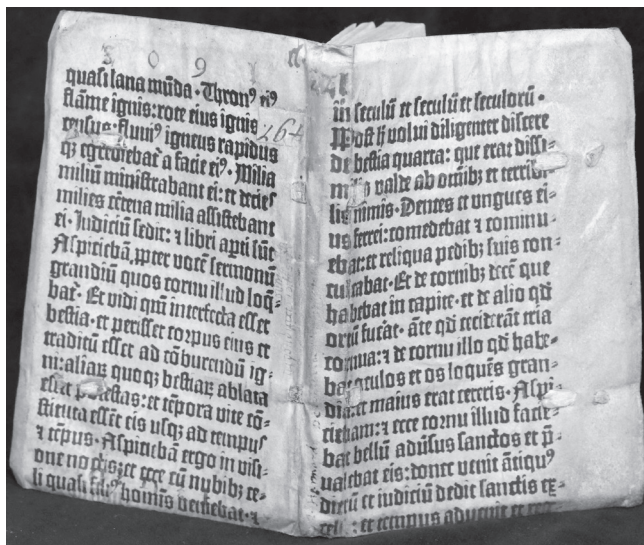 3 0 9 1
quasi lana mūda · Thronꝰ eiꝰ
flāme ignis: rote eius ignis
264
census · fluviꝰ igneus rapidus
qꝫ egrediebat̄ a facie eiꝰ. Milia
miliū ministrabant ei: et decies
milies cētena milia assistebant
ei · Iudiciū sedit: ⁊ libri aꝑti sūt
Aspiciebā ꝓpter vocē sermonū
grandiū quos cornu illud loq̄-
bat̄ · Et vidi qm̄ interfecta esset
bestia · et perisset corpus eius et
traditū esset ad cōburendū ig-
ni: aliaꝝ quoqꝫ bestiaꝝ ablata
esset potestas: et tēpora vite cō-
stituta essēt eis usqꝫ ad tempus
⁊ tēpus · Aspiciebā ergo in visi-
one noctis: et ecce cū nubibꝫ ce-
li quasi filiꝰ hominis veniebat · ⁊
in seculū et seculū et seculorū ·
Post h̄ volui diligenter discere
de bestia quarta: que erat dissi-
milis valde ab omībꝫ et terribi-
lis nimis · Dentes et ungues ei-
us ferrei: comedebat ⁊ cominu-
ebat: et reliqua pedibꝫ suis con-
culcabat · Et de cornibꝫ decē que
habebat in capite · et de alio qd̄
ortū fuerat · āte qd̄ ceciderāt tria
cornua: ⁊ de cornu illo qd̄ habe-
bat oculos et os loquēs gran-
dia: et maius erat ceteris · Aspi-
ciebam: ⁊ ecce cornu illud facie-
bat bellū adūsus sanctos et p̄-
valebat eis: donec venit ātiquꝰ
dierū et iudiciū dedit sanctis ex-
celsi: et tempus advenit et